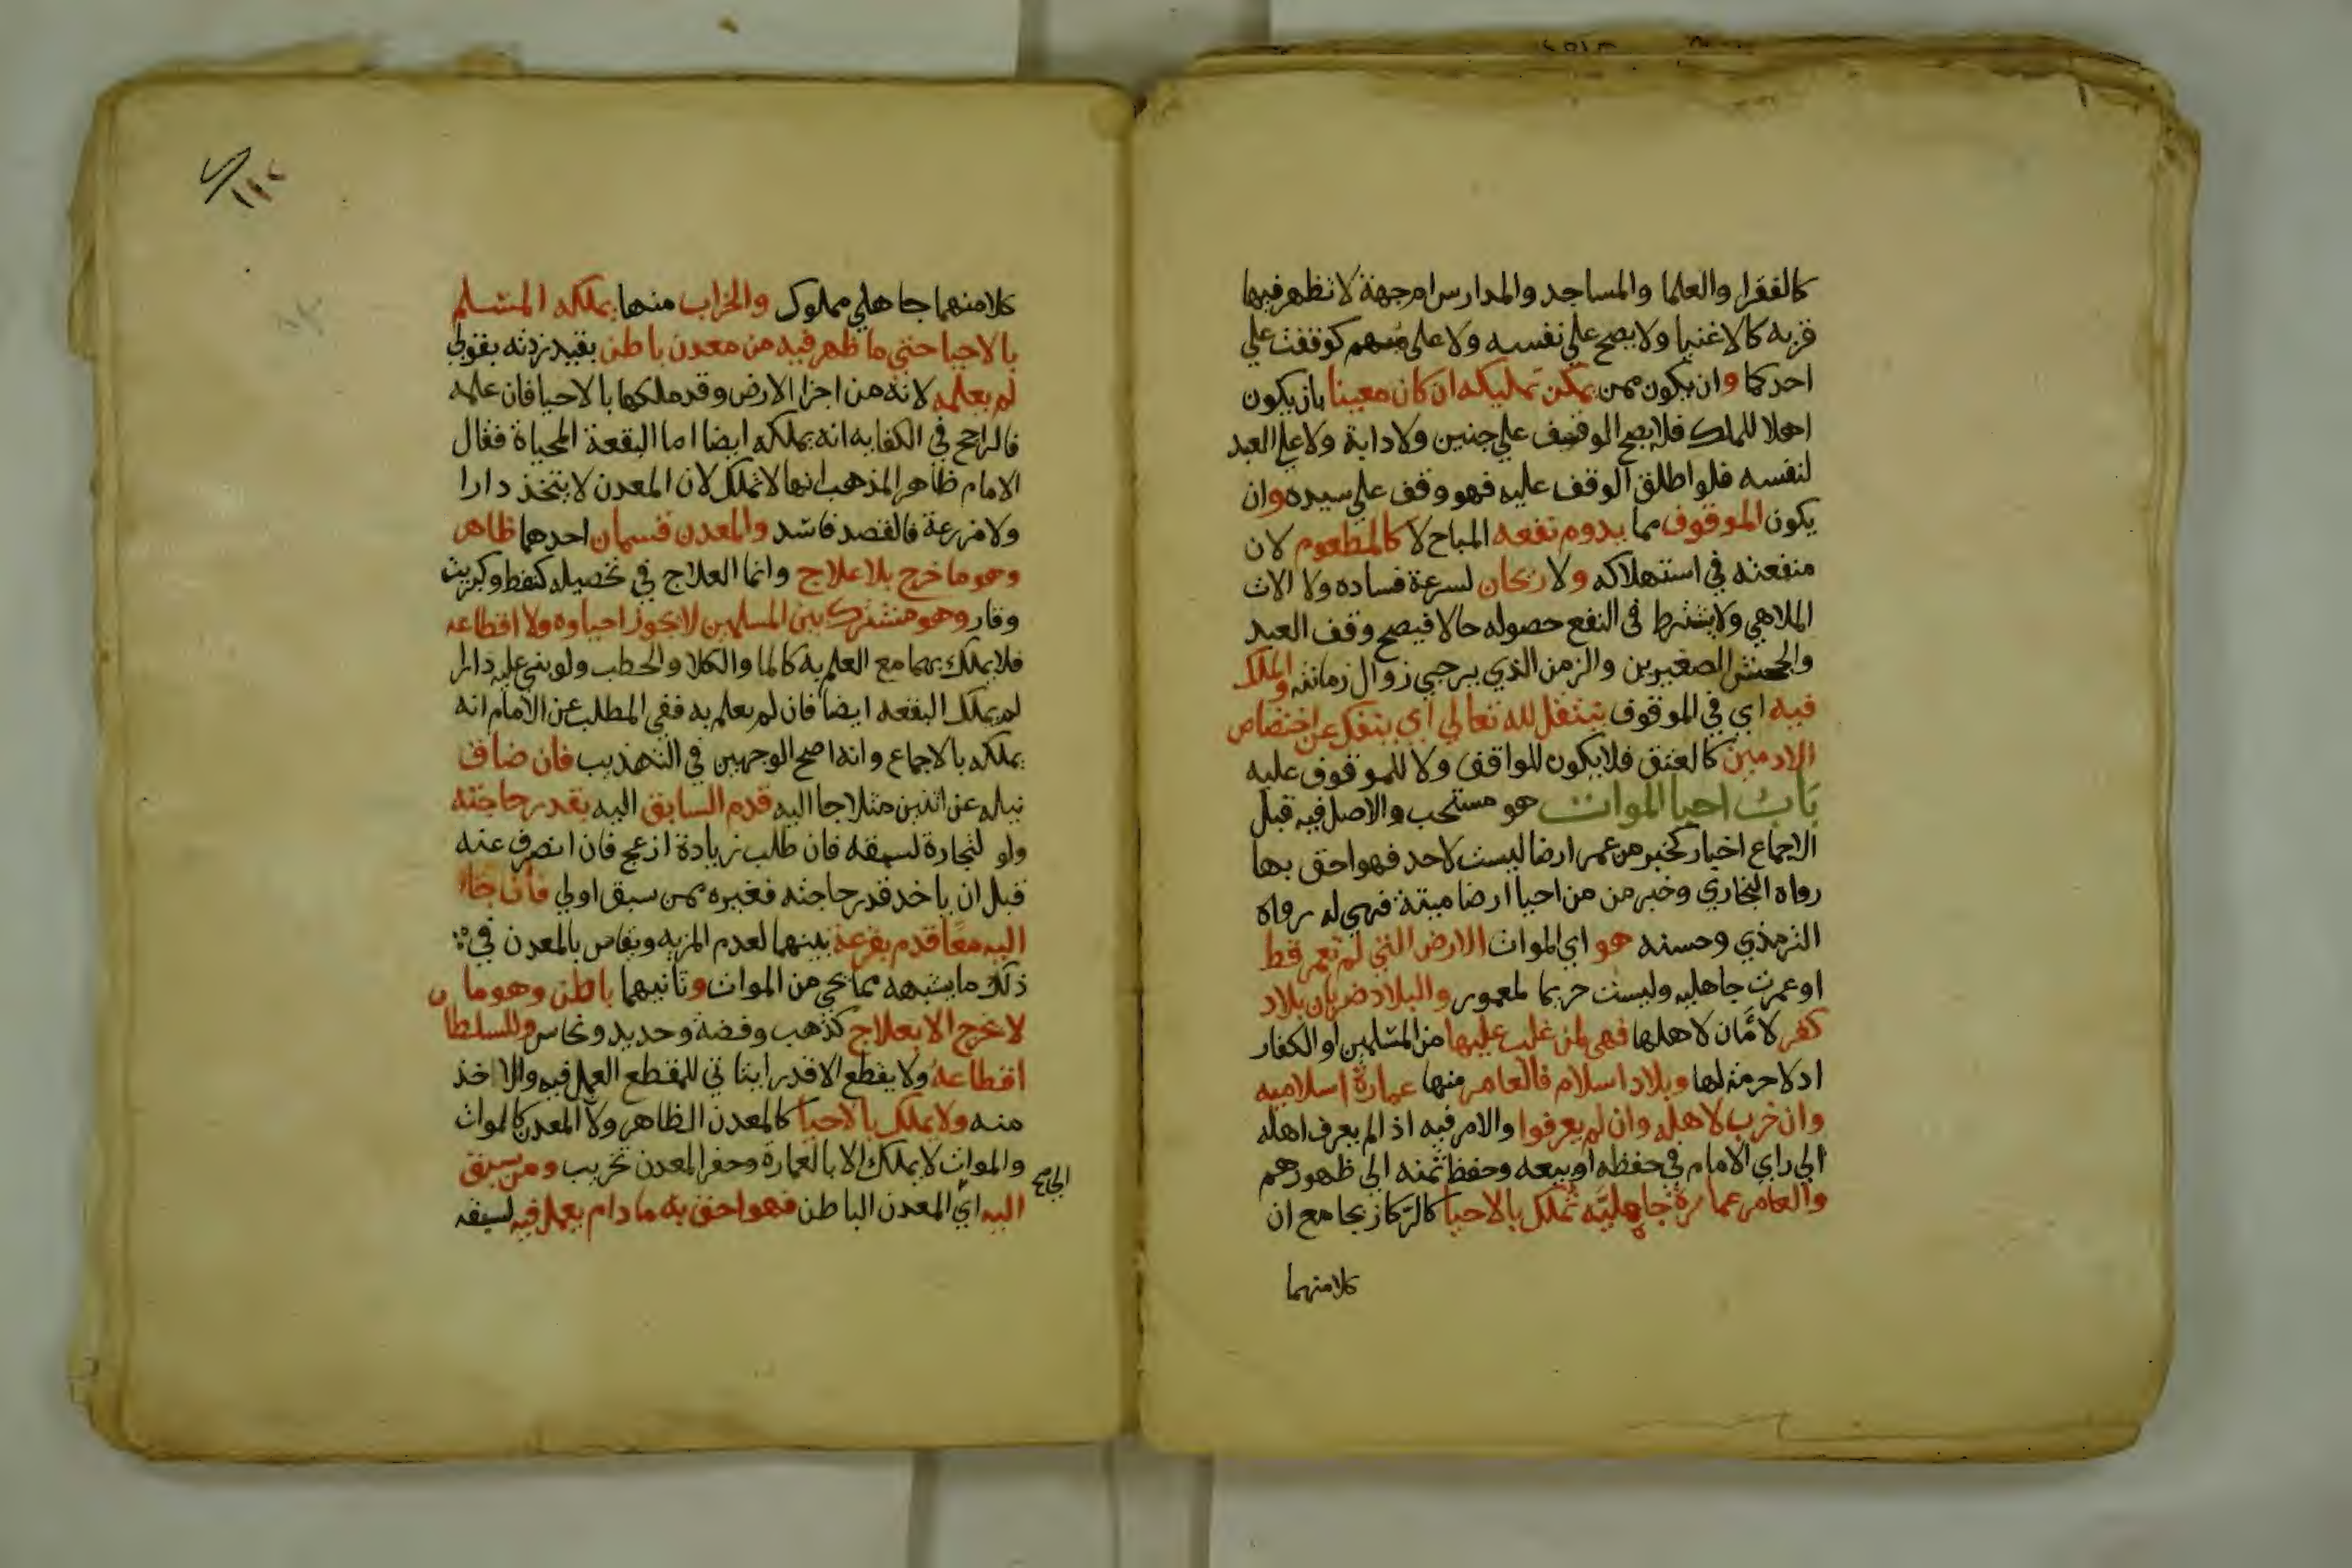 كالفقرا والعلما والمساجد والمدارس ام جهة لا تظهر فيها
قربه كالاغنيا ولا يصح علي نفسه ولا على مبهم كوقفت علي
احدكما وان يكون ممن يمكن تمليكه ان كان معينا بان يكون
اهلا للملك فلا يصح الوقف علي جنين ولا دابة ولا علي العبد
لنفسه فلو اطلق الوقف عليه فهو وقف علي سيده وان
يكون الموقوف مما يدوم نفعه المباح لا كالمطعوم لان
منفعته في استهلاكه ولا ريحان لسرعة فساده ولا الات
الملاهي ولا يشترط في النفع حصوله حالا فيصح وقف العبد
والجحش الصغيرين والزمن الذي يرجي زوال زمانته والملك
فيه اي في الموقوف ينتقل لله تعالي اي ينفك عن اختصاص
الادميين كالعتق فلا يكون للواقف ولا للموقوف عليه
باب احيا الموات هو مستحب والاصل فيه قبل
الاجماع اخبار كخبر من عمر ارضا ليست لاحد فهو احق بها
رواه البخاري وخبر من من احيا ارضا ميتة فهي له رواه
الترمذي وحسنه هو اي الموات الارض التي لم تعمر قط
او عمرت جاهليه وليست حريما لمعمور والبلاد ضربان بلاد
كفر لا امان لاهلها فهي لمن غلب عليها من المسلمين او الكفار
اذ لا حرمة لها وبلاد اسلام فالعامر منها عمارة اسلاميه
وان خرب لاهله وان لم يعرفوا والامر فيه اذا لم يعرف اهله
الي راي الامام في حفظه او بيعه وحفظ ثمنه الي ظهورهم
والعامر عمارة جاهليه تملك بالاحيا كالركاز بجامع ان
كلا منهما
١١٢
كلا منهما جاهلي مملوك والخراب منها يملكه المسلم
بالاحيا حتي ما ظهر فيه من معدن باطن بقيد زدته بقولي
لم يعلمه لانه من اجزا الارض وقد ملكها بالاحيا فان علمه
فالراجح في الكفايه انه يملكه ايضا اما البقعة المحياة فقال
الامام ظاهر المذهب انها لا تملك لان المعدن لا يتخذ دارا
ولا مزرعة فالقصد فاسد والمعدن قسمان احدهما ظاهر
وهو ما خرج بلا علاج وانما العلاج في تحصيله كنفط وكبريت
وقار وهو مشترك بين المسلمين لا يجوز احياوه ولا اقطاعه
فلا يملك بهما مع العلم به كالما والكلا والحطب ولو بني عليه دارا
لم يملك البقعه ايضا فان لم يعلم به ففي المطلب عن الامام انه
يملكه بالاجماع وانه اصح الوجهين في التهذيب فان ضاق
نيله عن اثنين مثلا جا اليه قدم السابق اليه بقدر حاجته
ولو لتجارة لسبقه فان طلب زيادة ازعج فان انصرف عنه
قبل ان ياخد قدر حاجته فغيره ممن سبق اولي فان جاا
اليه معا قدم بقرعة بينهما لعدم المزيه ويقاس بالمعدن في
ذلك ما يشبهه مما يحي من الموات وثانيهما باطن وهو ما
لا يخرج الا بعلاج كذهب وفضة وحديد ونحاس وللسلطان
اقطاعه ولا يقطع الا قدرا يتاتي للمقطع العمل فيه والاخذ
منه ولا يملك بالاحيا كالمعدن الظاهر ولا المعدن كالموات
والموات لا يملك الا بالعمارة وحفر المعدن تخريب ومن سبق
اليه اي المعدن الباطن فهو احق به ما دام يعمل فيه لسبقه